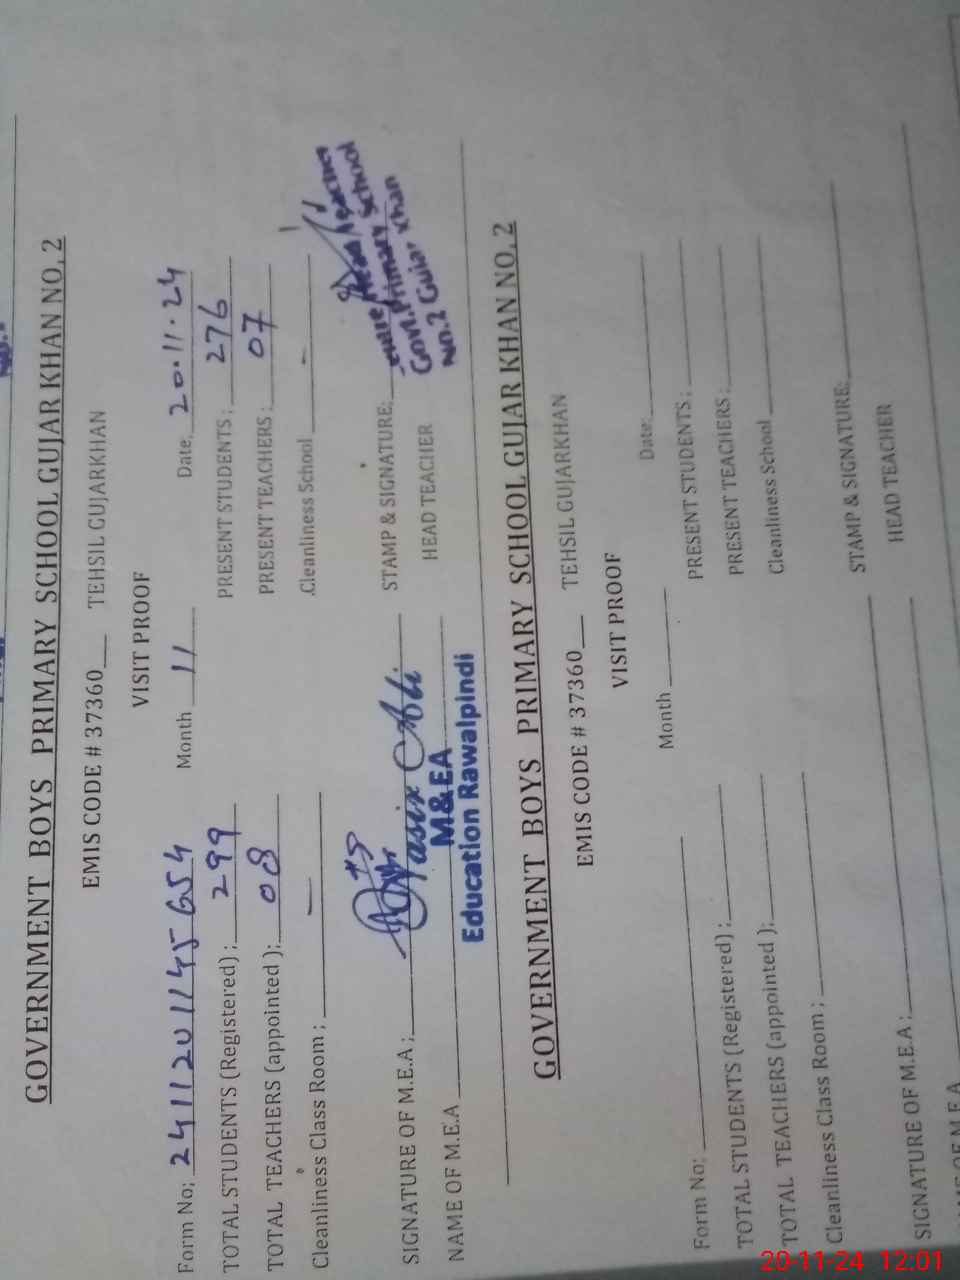 GOVERNMENT BOYS PRIMARY SCHOOL GUJAR KHAN NO, 2
EMIS CODE # 37360___ TEHSIL GUJARKHAN
VISIT PROOF
Form No; 2411201145654 Month 11 Date; 20.11.24
TOTAL STUDENTS (Registered) ; 299 PRESENT STUDENTS ; 276
TOTAL TEACHERS (appointed ); 08 PRESENT TEACHERS ; 07
Cleanliness Class Room ; — .Cleanliness School –
SIGNATURE OF M.E.A ; STAMP & SIGNATURE;
Head Teacher
Govt. Primary School
No.2 Gujar Khan
NAME OF M.E.A Yasir Ali HEAD TEACHER
M&EA
Education Rawalpindi
GOVERNMENT BOYS PRIMARY SCHOOL GUJAR KHAN NO. 2
EMIS CODE # 37360___ TEHSIL GUJARKHAN
VISIT PROOF
Form No; Month Date;
TOTAL STUDENTS (Registered) ; PRESENT STUDENTS ;
TOTAL TEACHERS (appointed ); PRESENT TEACHERS ;
Cleanliness Class Room ; Cleanliness School
SIGNATURE OF M.E.A ; STAMP & SIGNATURE;
NAME OF M.E.A HEAD TEACHER
20-11-24 12:01